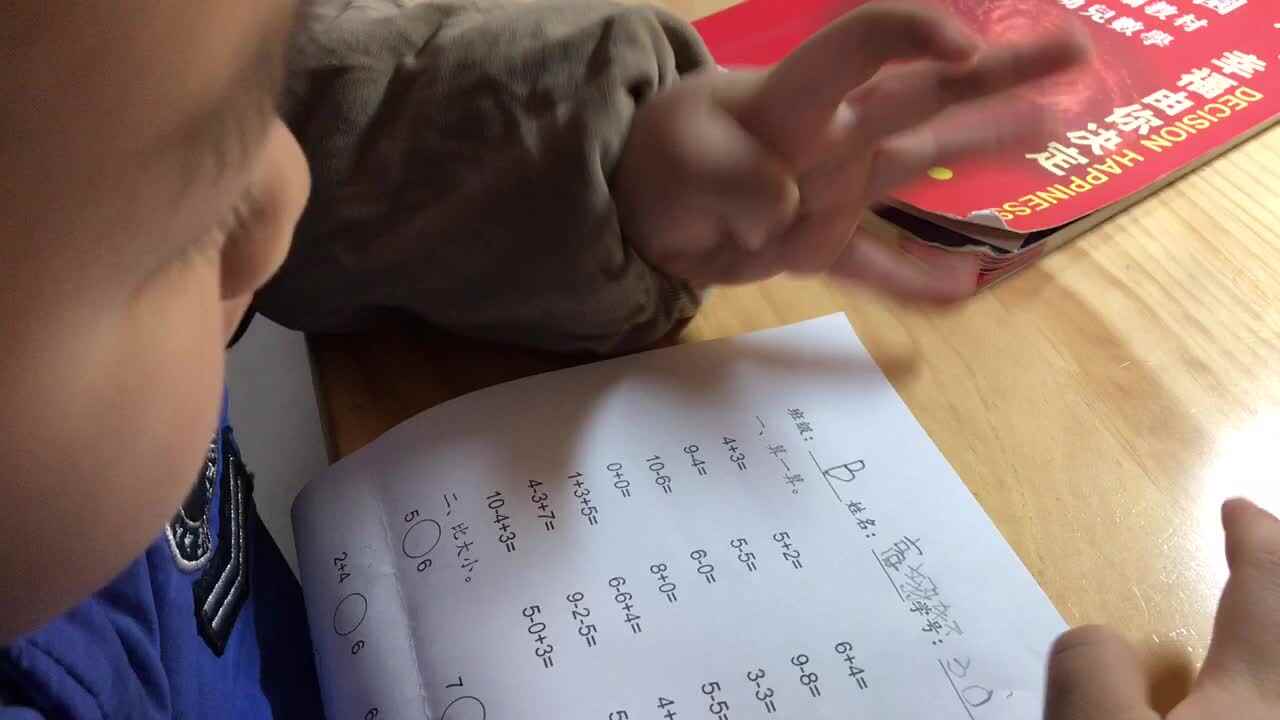 教材
兒數學
幸福由你決定
DECISION HAPPINESS
班级: B 姓名: 高 学号: 30
一、算一算。
4+3= 5+2= 6+4=
9-4= 5-5= 9-8=
10-6= 6-0= 3-3=
0+0= 8+0= 5-5=
1+3+5= 6-6+4= 4+
4-3+7= 9-2-5= 5
10-4+3= 5-0+3=
二、比大小。
5○6 7○
2+4○6 6